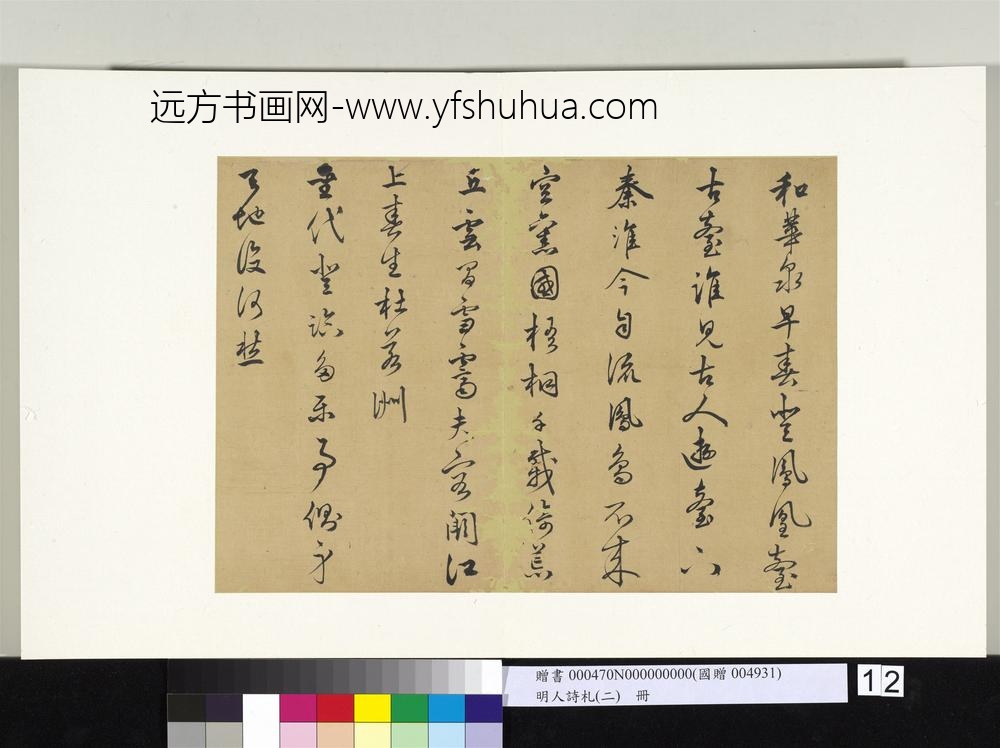 远方书画网-www.yfshuhua.com
和華泉早春登鳳凰臺
古臺誰見古人遊臺下
秦淮今自流鳳鳥不來
空舊國梧桐千載倚荒
丘雲間雪霽夫容闕江
上春生杜若洲
聖代登臨多樂事側身
天地復何愁
贈書 000470N000000000(國贈 004931)
明人詩札(二) 冊
12